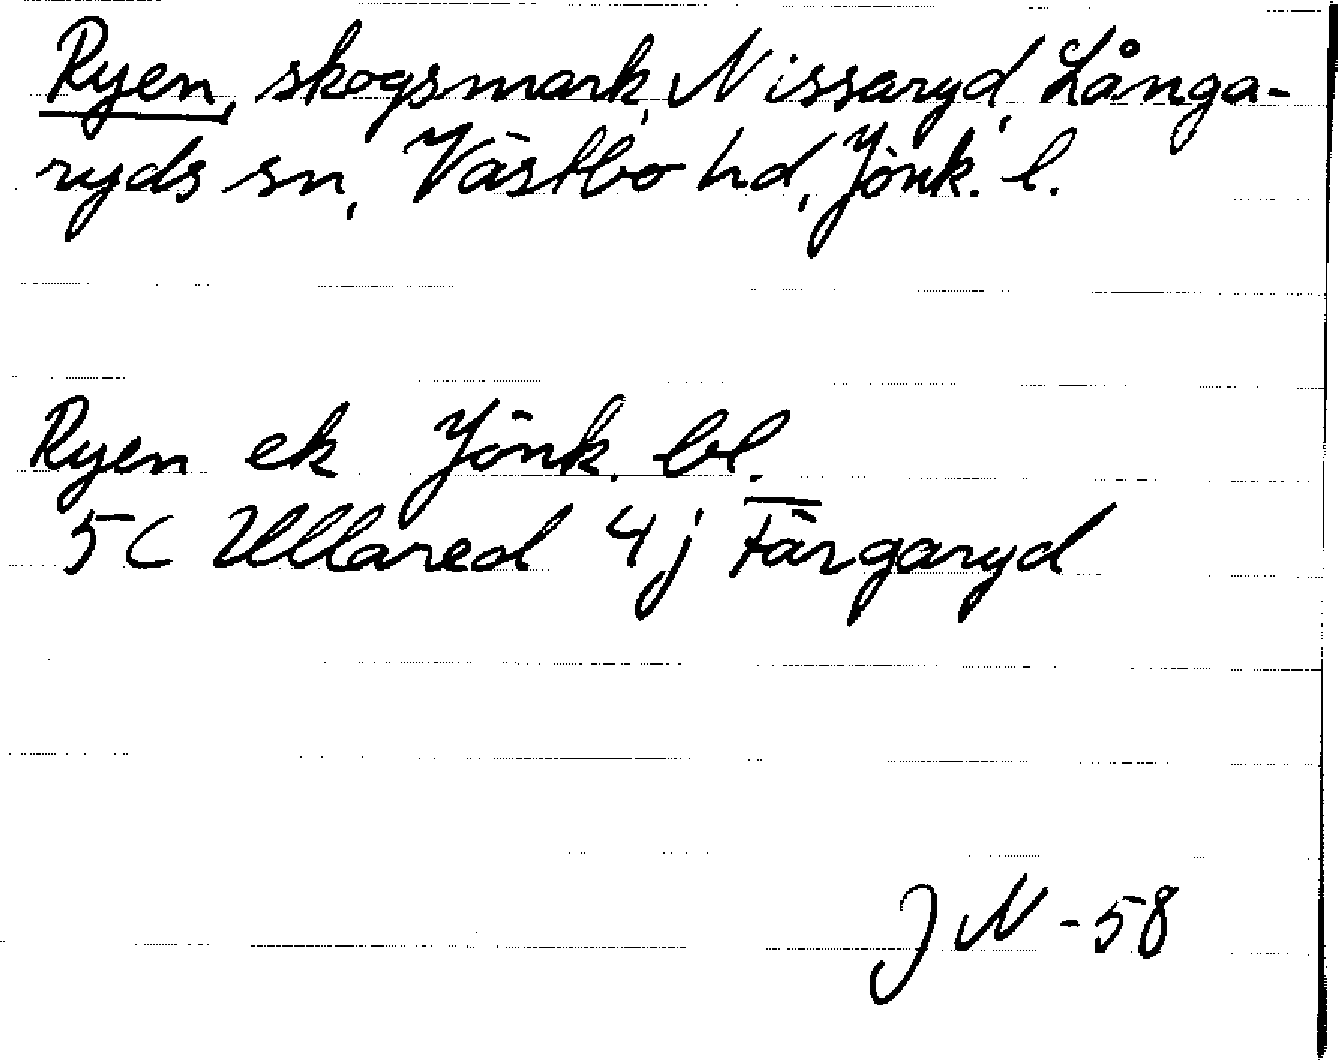 Ryen, skogsmark, Nissaryd, Långa-
ryds sn, Västbo hd, Jönk. l.
Ryen ek Jönk. bl.
5C Ullared 4j Färgaryd
JN -58